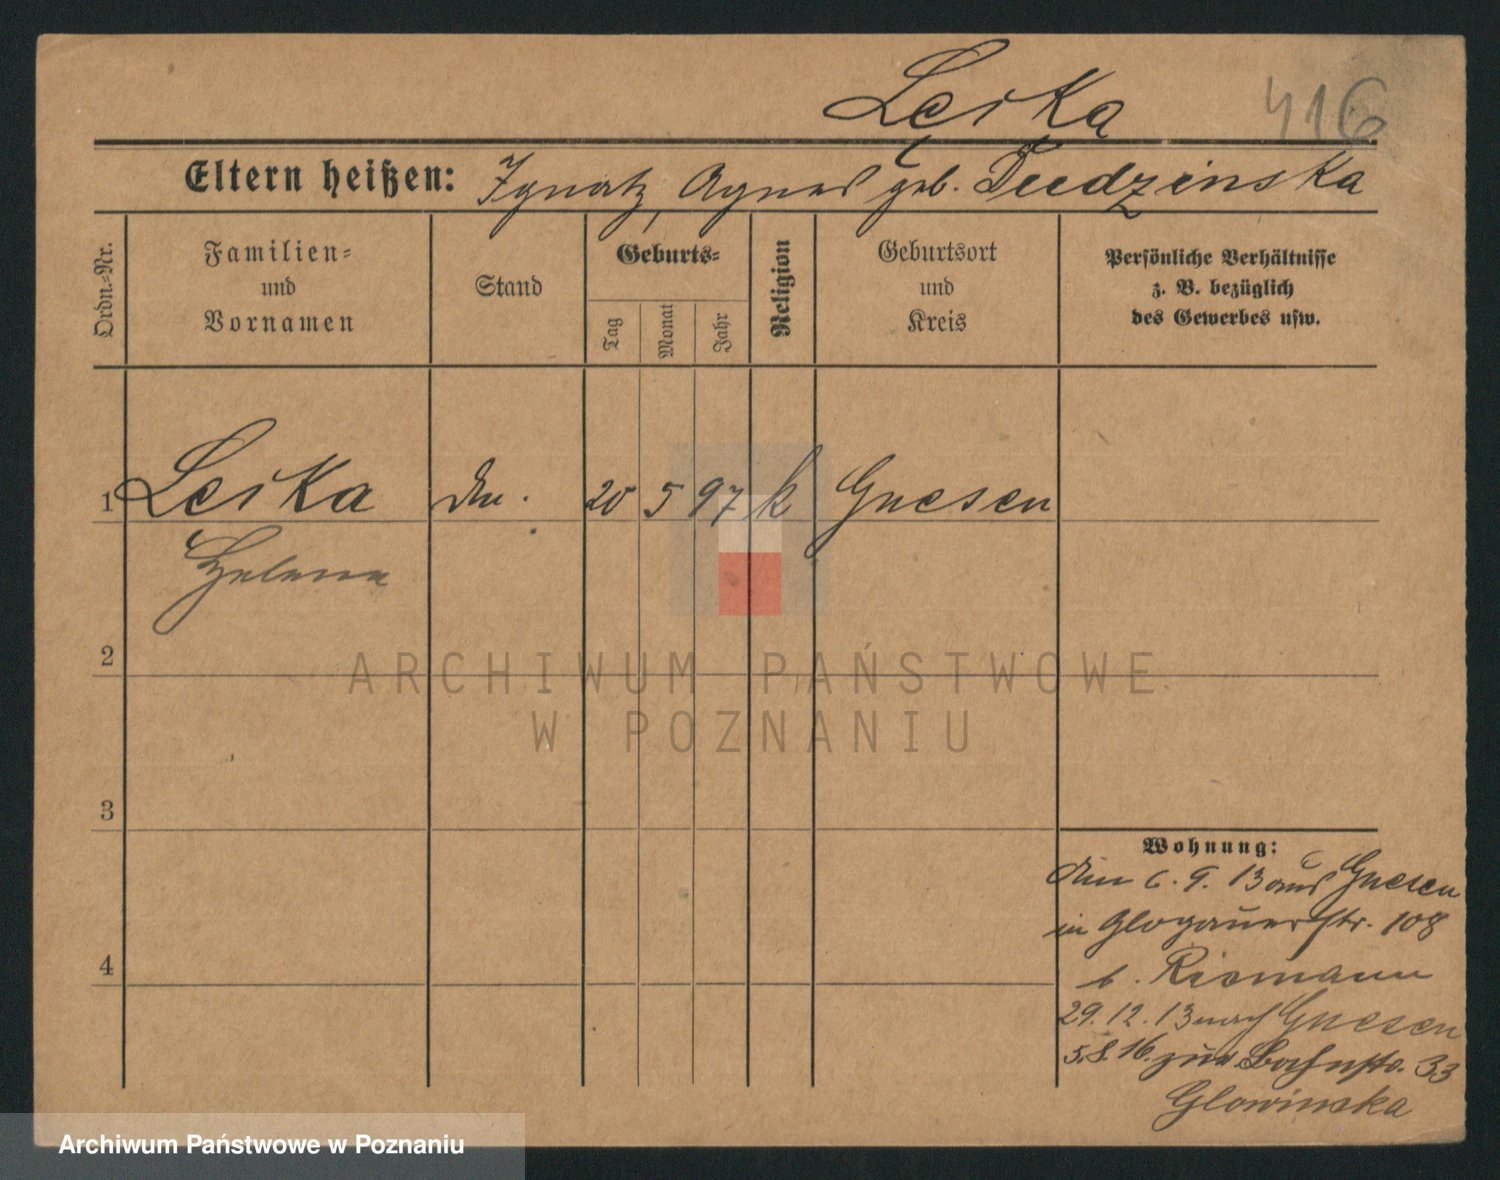 Leska
416
Eltern heißen: Ignatz, Agnes geb. Dudzinska
Ordn.-Nr.
Familien-
und
Vornamen
Stand
Geburts-
Tag
Monat
Jahr
Religion
Geburtsort
und
Kreis
Persönliche Verhältnisse
z. B. bezüglich
des Gewerbes usw.
1 Leska 20 5 97 k Gnesen
Helena
2
3
4
Wohnung:
6. 9. 13 aus Gnesen
in Glogauerstr. 108
b. Riemann
29. 12. 13 nach Gnesen
5. 8. 16. zur. Bahnstr. 33
Glowinska
ARCHIWUM PAŃSTWOWE
W POZNANIU
Archiwum Państwowe w Poznaniu